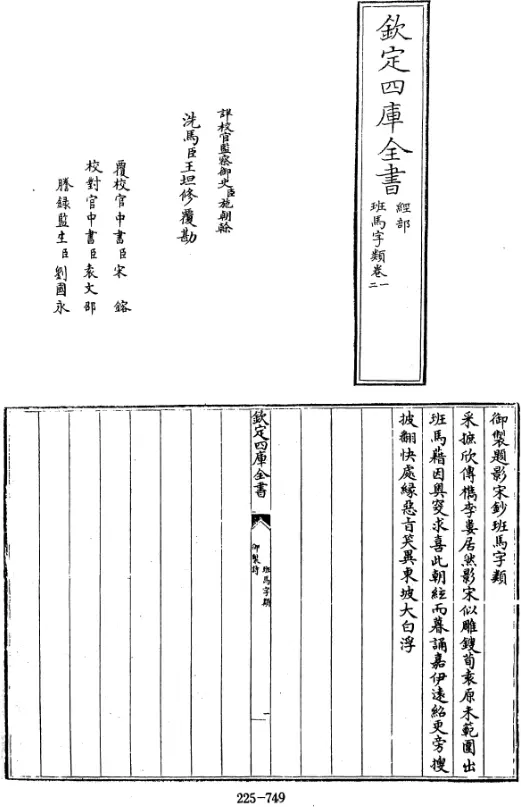 欽定四庫全書
經部
班馬字類卷一
二
詳校官監察御史臣施朝幹
洗馬臣王坦修覆勘
覆校官中書臣宋鎔
校對官中書臣袁文邵
謄錄監生臣劉國永
御製題影宋鈔班馬字類
采摭欣傳檇李婁居然影宋似雕鎪荀袁原未範圍出
班馬藉因奧窔求喜此朝經而暮誦嘉伊遠紹更旁搜
披翻快處緣惡旨笑異東坡大白浮
欽定四庫全書
班馬字類
御製詩
一
225-749